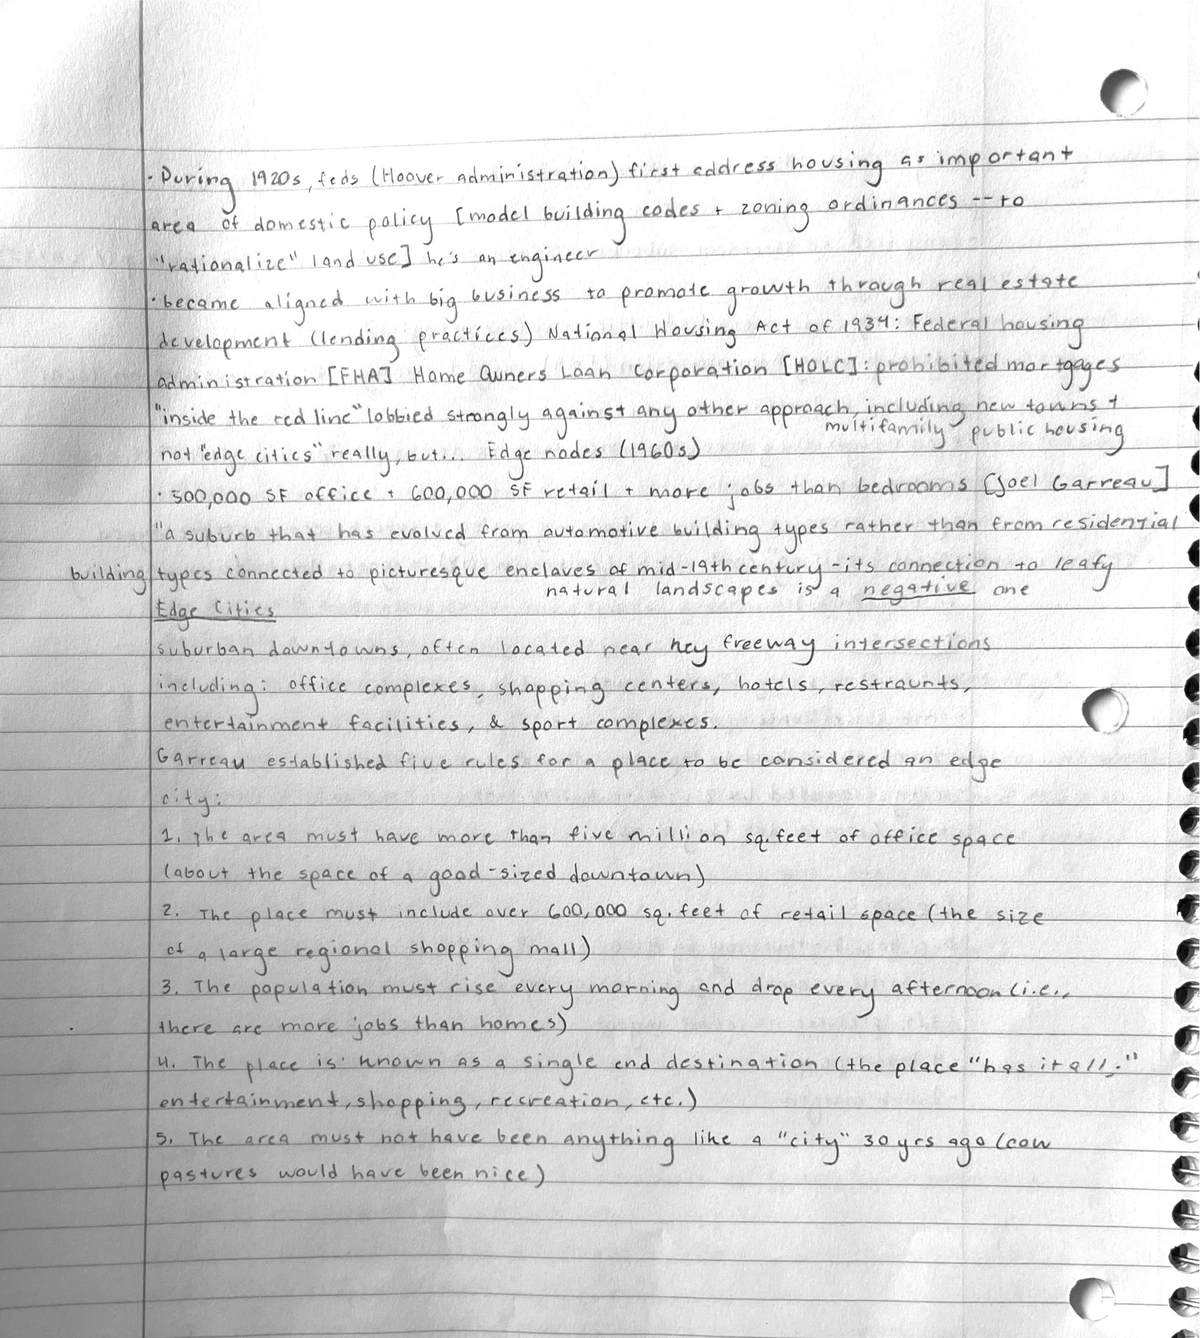 · During 1920s, feds (Hoover administration) first address housing as important
area of domestic policy [model building codes + zoning ordinances -- to
"rationalize" land use] he's an engineer
· became aligned with big business to promote growth through real estate
development (lending practices) National Housing Act of 1934: Federal housing
administration [FHA] Home Owners Loan Corporation [HOLC]: prohibited mortgages
"inside the red line" lobbied strongly against any other approach, including new towns +
multifamily public housing
not "edge cities" really, but... Edge nodes (1960s)
· 500,000 SF office + 600,000 SF retail + more jobs than bedrooms [Joel Garreau]
"a suburb that has evolved from automotive building types rather than from residential
building types connected to picturesque enclaves of mid-19th century - its connection to leafy
natural landscapes is a negative one
Edge Cities
suburban downtowns, often located near key freeway intersections
including: office complexes, shopping centers, hotels, restraunts,
entertainment facilities, & sport complexes.
Garreau established five rules for a place to be considered an edge
city:
1. The area must have more than five million sq. feet of office space
(about the space of a good-sized downtown)
2. The place must include over 600,000 sq. feet of retail space (the size
of a large regional shopping mall)
3. The population must rise every morning and drop every afternoon (i.e.,
there are more jobs than homes)
4. The place is known as a single end destination (the place "has it all;"
entertainment, shopping, recreation, etc.)
5. The area must not have been anything like a "city" 30 yrs ago (cow
pastures would have been nice)